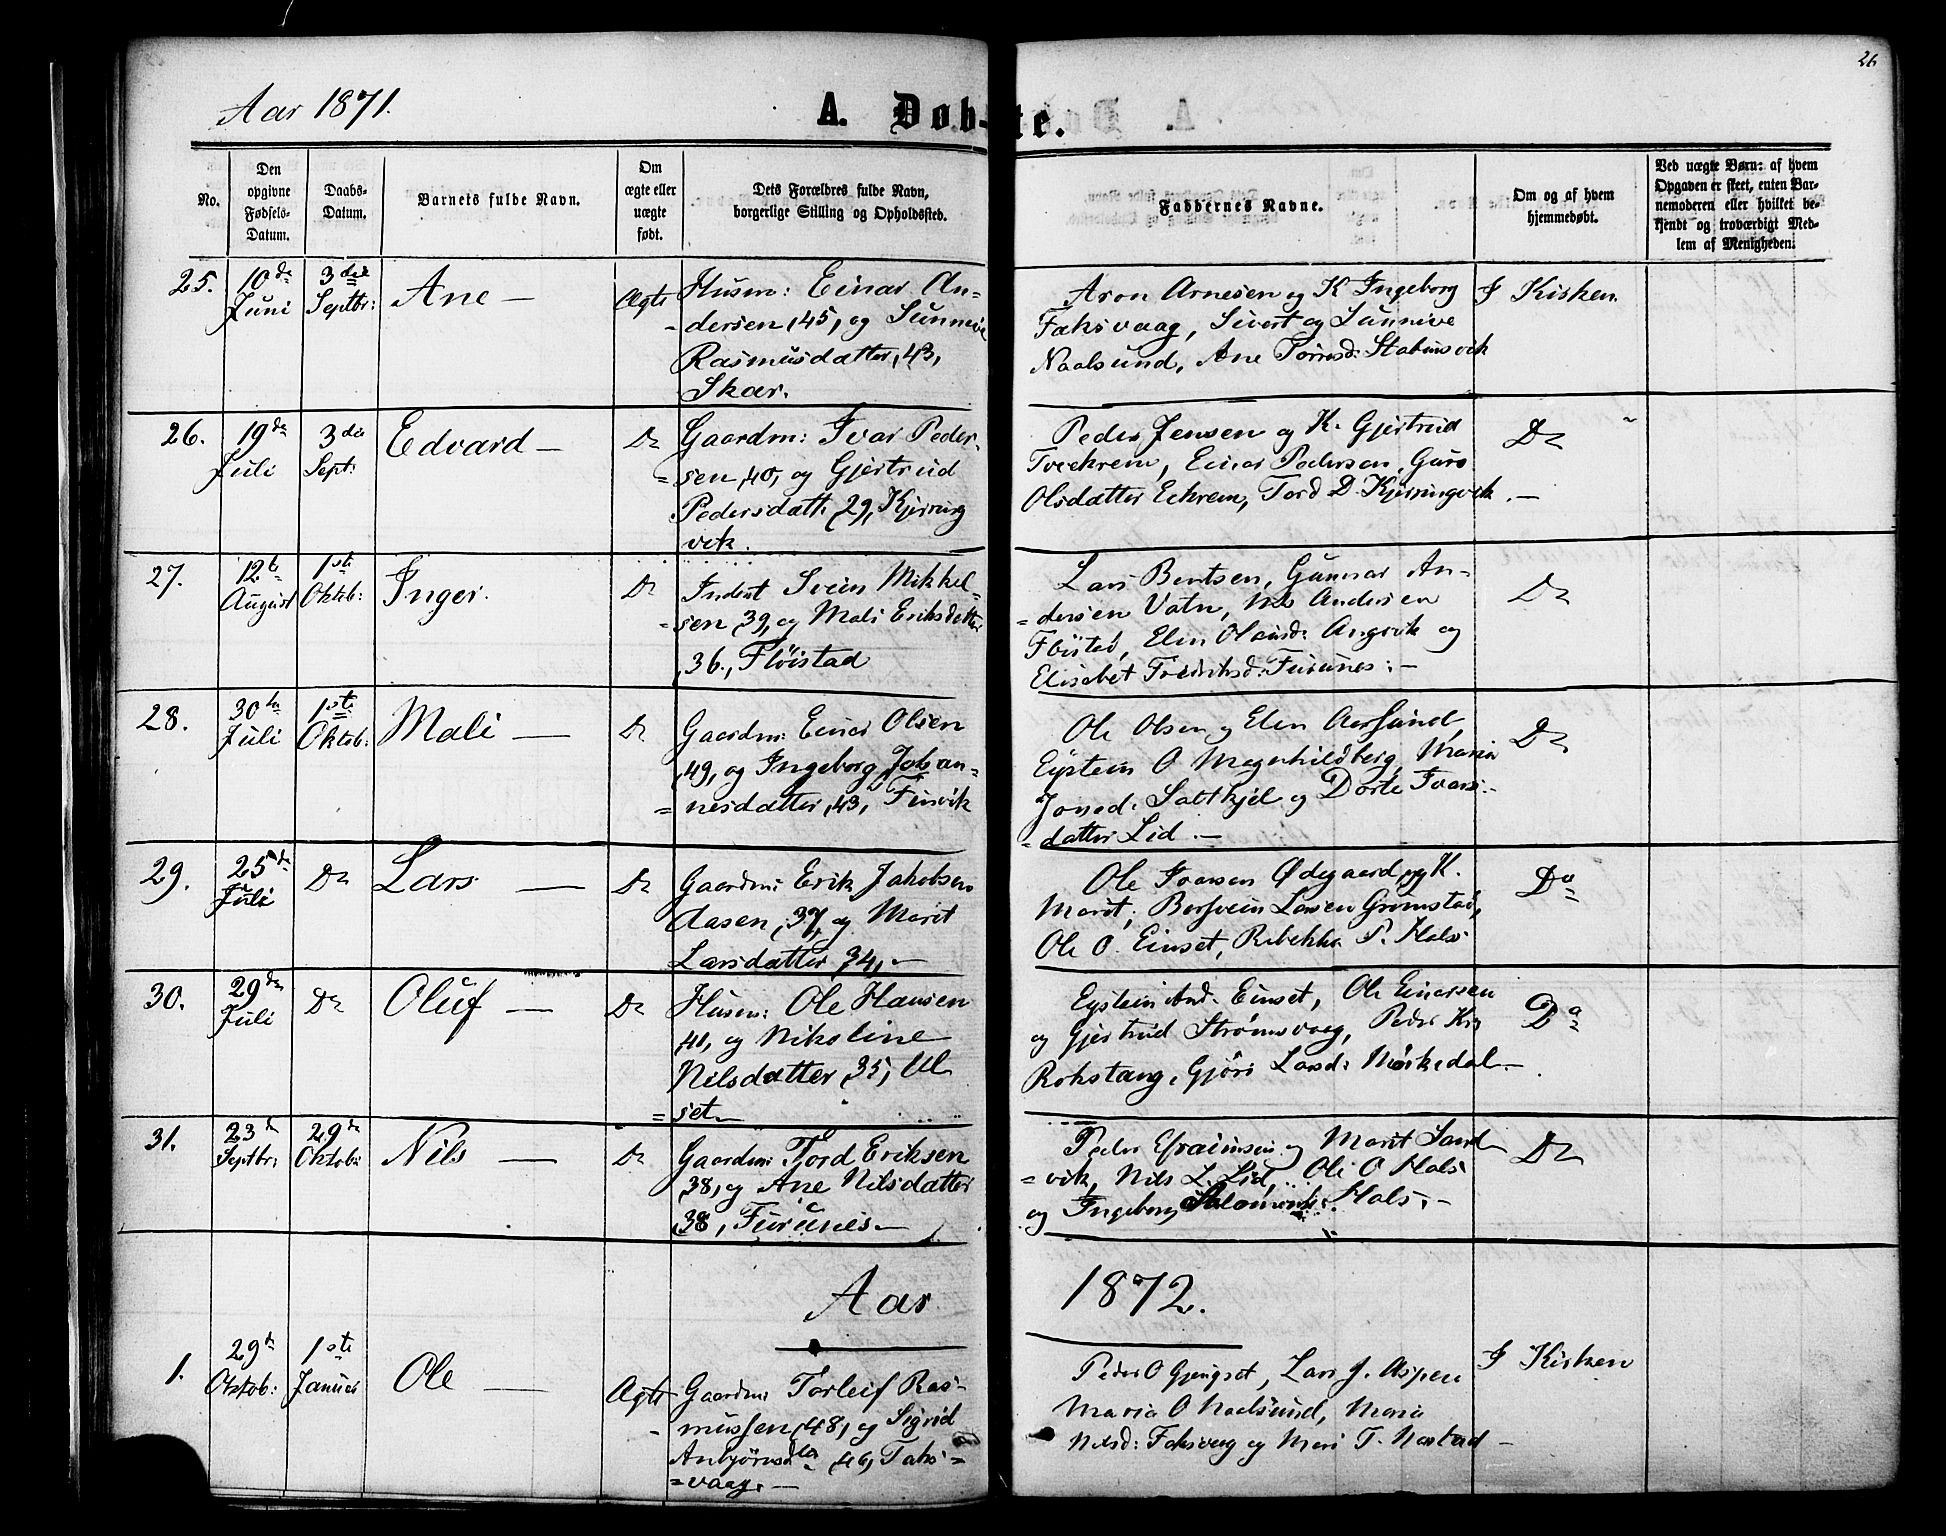 26
Aar 1871.
A. Døb-te.
No.
Den opgivne Fødsels-Datum.
Daabs-Datum.
Barnets fulde Navn.
Om ægte eller uægte født.
Dets Forældres fulde Navn, borgerlige Stilling og Opholdssted.
Faddernes Navne.
Om og af hvem hjemmedøbt.
Ved uægte Børn: af hvem Opgaven er skeet, enten Barnemoderen eller hvilket bekjendt og troværdigt Medlem af Menigheden.
25.
10de Juni
3die Septbr:
Ane —
Ægte
Husm: Einar An-
dersen, 45, og Sunneve
Rasmusdatter, 43,
Skar.
Aron Arnesen og K Ingeborg
Faksvaag, Sivert og Sunnive
Naalsund, Ane Tørresd: Stabensvik
I Kirken.
26.
19de Juli
3die Sept:
Edvard —
Do
Gaardm: Ivar Peder-
=sen, 40, og Gjertrud
Pedersdatt: 29, Kjørring
vik.
Peder Jensen og K. Gjertrud
Tveekrem, Einar Pedersen, Guro
Olsdatter Eekrem, Tord D. Kjørringvik. —
Do
27.
12te August
1ste Oktob:
Inger.
Do
Inderst Svein Mikkel-
=sen, 39, og Mali Eriksdatter
36., Fløistad
Lars Bentsen, Gunnar An-
=dersen Vatn, Nils Andersen
Fløistad, Elen Olausd: Angvik og
Elisabet Fredriksd: Furunes: —
Do
28.
30te Juli
1ste Oktob:
Mali —
Do
Gaardm: Einar Olsen
49, og Ingeborg Johan-
=nesdatter, 43, Finvik
Ole Olsen og Elen Aarsund,
Eystein O Magerhildberg, Maria
Jonsd: Saltkjel og Dorte Ivars-
=datter Lid. —
Do
29.
25de Juli
Do
Lars —
Do
Gaardm: Erik Jakobsen
Aasen, 37, og Marit
Larsdatter 34, —
Ole Ivarsen Ødegaard, og K.
Marit, Bersvein Larsen Grømstad,
Ole O. Einset, Rebekka P. Hals
Do
30.
29de Juli
Do
Oluf —
Do
Husm: Ole Hansen
40, og Nikoline
Nilsdatter, 35, Ul
=set —
Eystein And. Einset, Ole Einarsen
og Gjertrud Strømsvaag, Peder
Rokstang, Gjøri Larsd: Mørkedal —
Do
31.
23de Septbr:
29de Oktob:
Nils —
Do
Gaardm: Tord Eriksen
38, og Ane Nilsdatter
38, Furunes —
Peder Efraimsen og Marit Sand
=vik, Nils L. Lid, Ole O Hals
og Ingeborg Salomonsd: Hals. —
Do
Aar 1872.
1.
29de Oktob:
1ste Januar
Ole —
Ægte
Gaardm: Torleif Ras-
mussen, 48, og Sigrid
Anbjørnsdtr 46, Faks-
=vaag. —
Peder O Gjengset, Lars J. Aspen
Maria O Naalsund, Maria
Nilsd: Faksvaag og Mari T. Nastad —
I Kirken